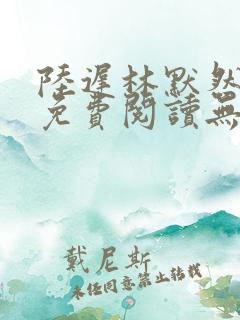 陸遲林默然
免費閱讀無
戴尼斯
未經同意禁止轉載